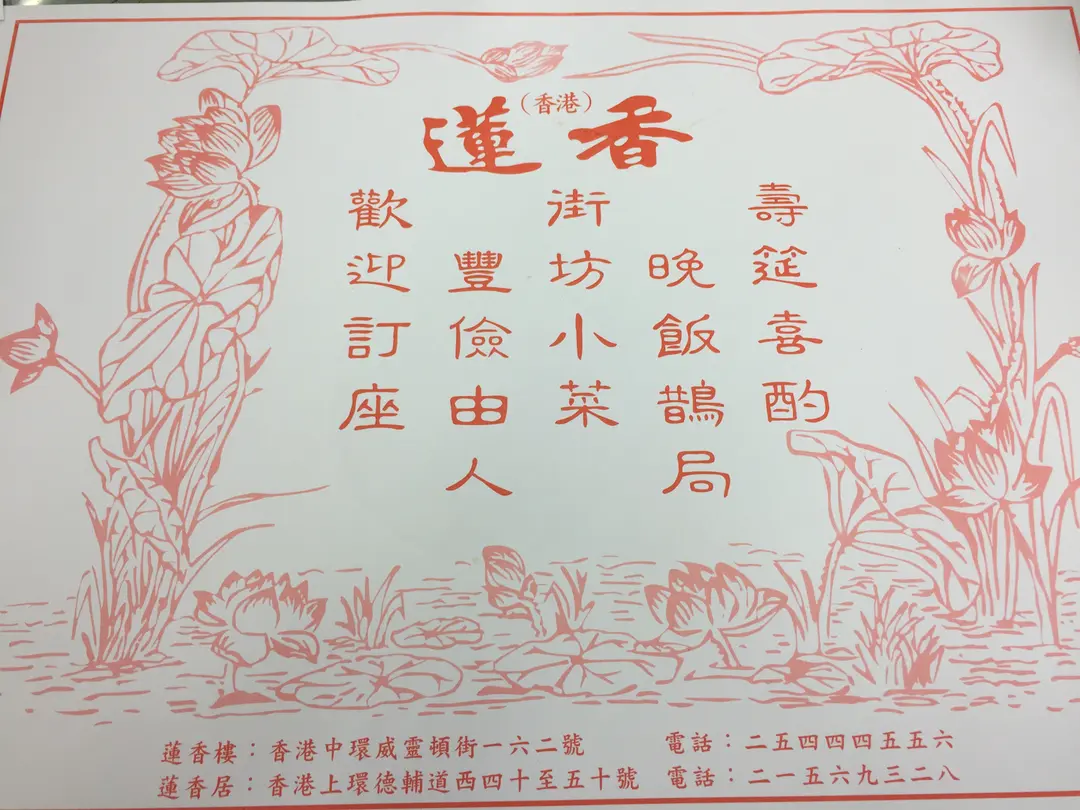 蓮香
（香港）
壽筵喜酌
晚飯鵲局
街坊小菜
豐儉由人
歡迎訂座
蓮香樓：香港中環威靈頓街一六二號
電話：二五四四四五五六
蓮香居：香港上環德輔道西四十至五十號
電話：二一五六九三二八